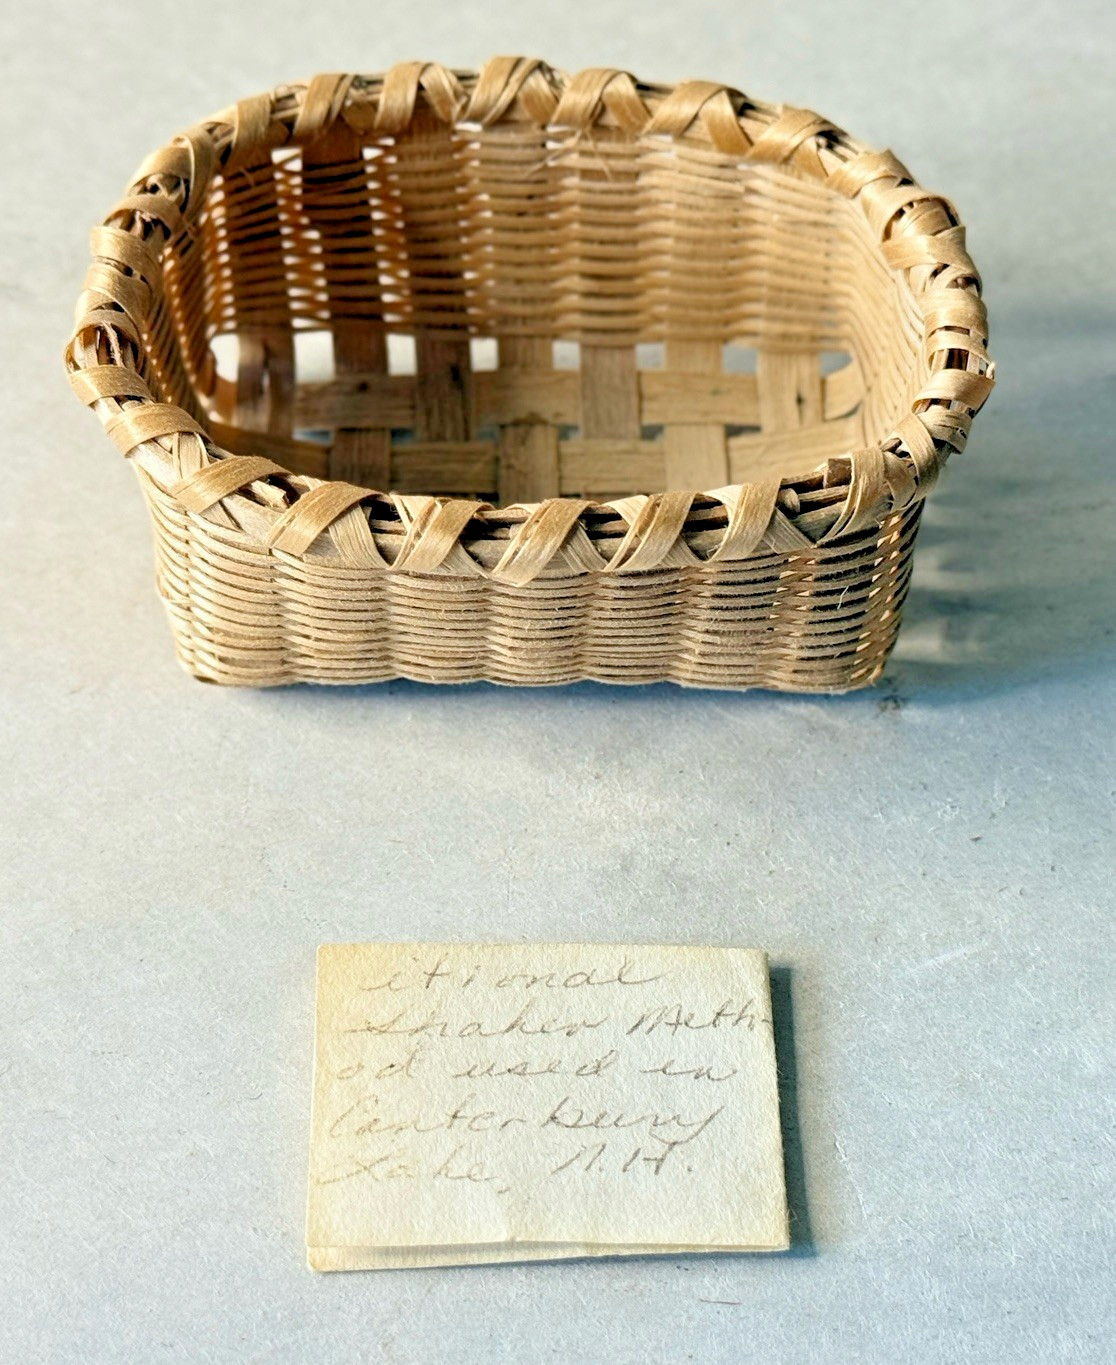 itional
Shaker Meth-
od used in
Canterbury
Lake, N.H.